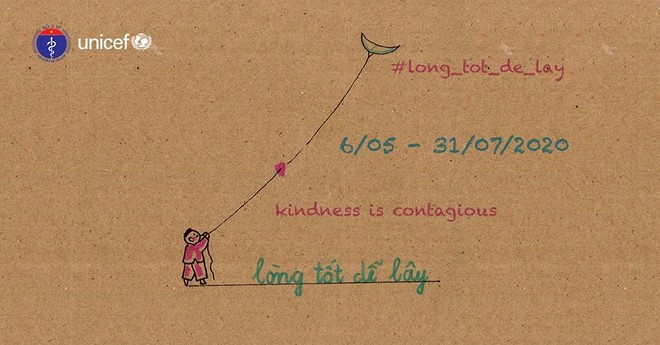 unicef
#long_tot_de_lay
6/05 - 31/07/2020
kindness is contagious
lòng tốt dễ lây